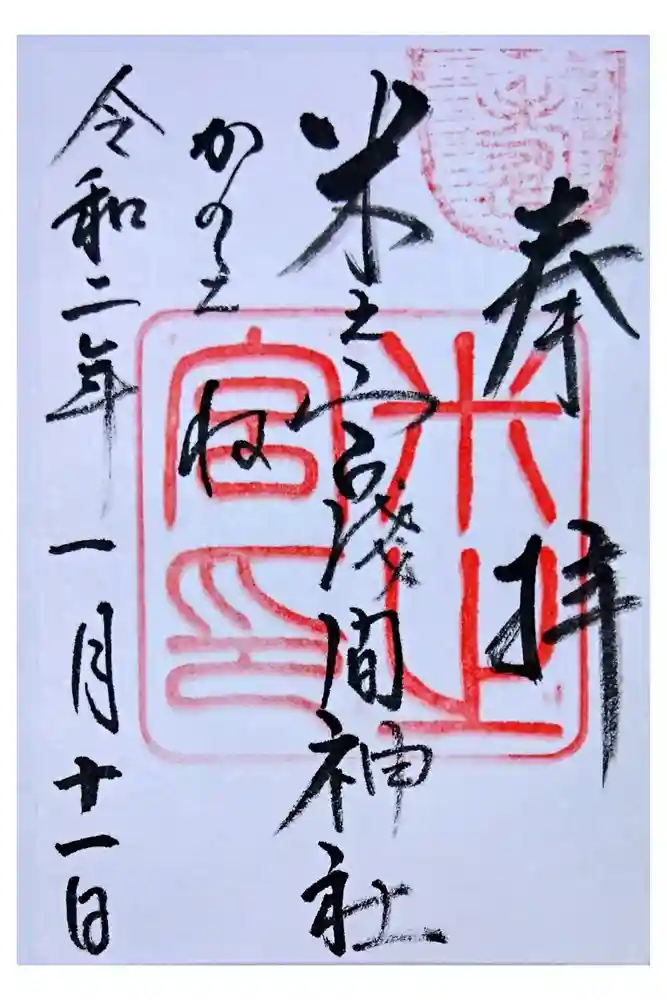 奉拝
米之宮浅間神社
かのえ ね
令和二年一月十一日
米之宮印